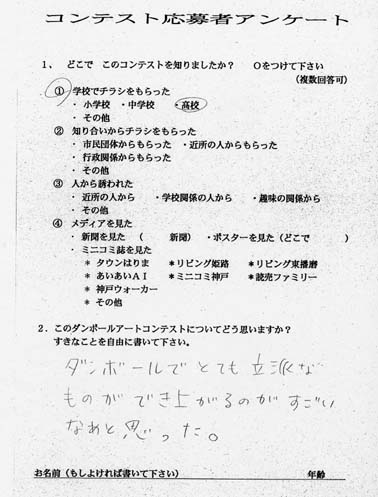 コンテスト応募者アンケート
1、 どこで このコンテストを知りましたか？ ○をつけて下さい
（複数回答可）
① 学校でチラシをもらった
・ 小学校 ・中学校 ・高校
・ その他
② 知り合いからチラシをもらった
・ 市民団体からもらった ・近所の人からもらった
・ 行政関係からもらった
・ その他
③ 人から誘われた
・ 近所の人から ・学校関係の人から ・趣味の関係から
・ その他
④ メディアを見た
・ 新聞を見た （ 新聞） ・ポスターを見た（どこで ）
・ ミニコミ誌を見た
＊ タウンはりま ＊リビング姫路 ＊リビング東播磨
＊ あいあいＡＩ ＊ミニコミ神戸 ＊読売ファミリー
＊ 神戸ウォーカー
＊ その他
2．このダンボールアートコンテストについてどう思いますか？
すきなことを自由に書いて下さい。
ダンボールでとても立派な
ものができ上がるのがすごい
なあと思った。
お名前（もしよければ書いて下さい） 年齢